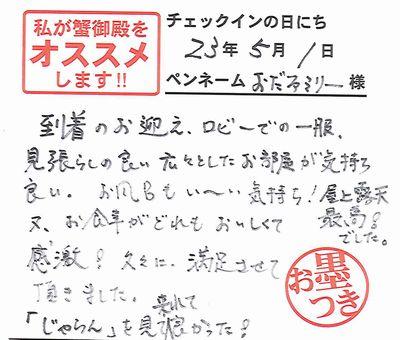 私が蟹御殿を
オススメ
します!!
チェックインの日にち
23年5月1日
ペンネーム おだファミリー 様
到着のお迎え、ロビーでの一服、
見張らしの良い広々としたお部屋が気持ち
良い。お風呂もい〜い気持ち!屋上露天
最高!
でした。
又、お食事がどれもおいしくて
感激!久々に、満足させて
頂きました。
「じゃらん」を見て来れて良かった!
お墨つき